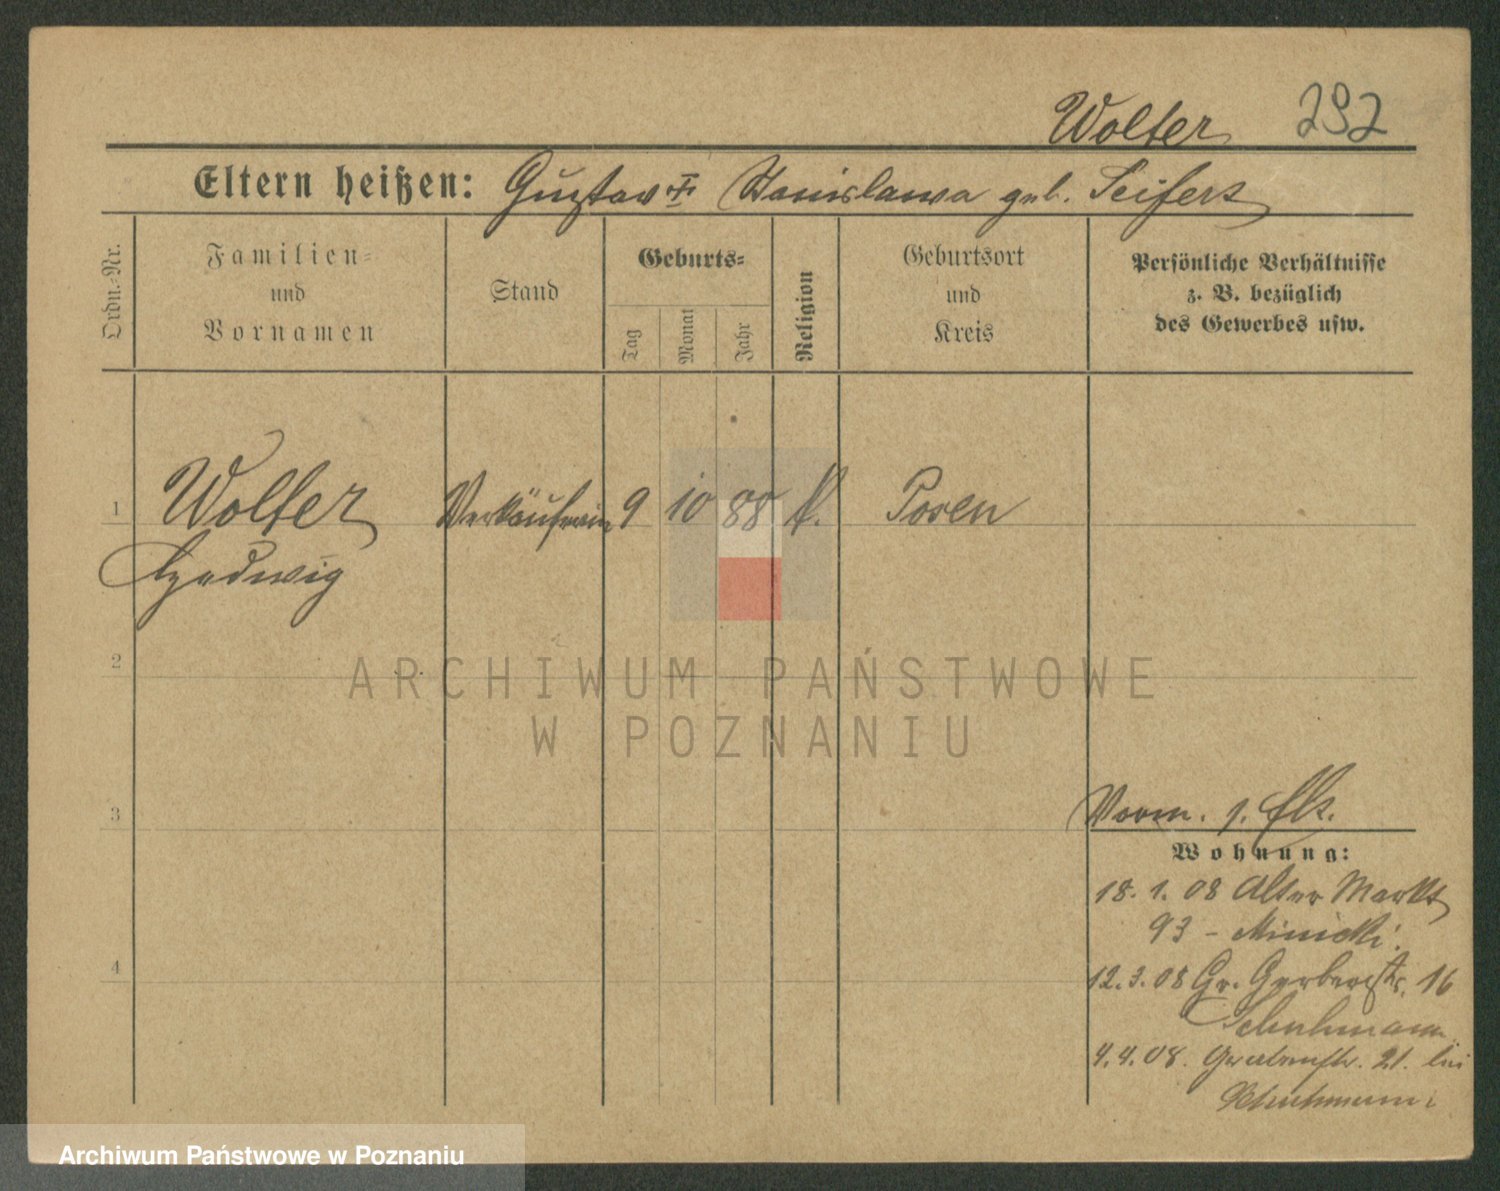 Wolter 292
Eltern heißen: Gustav † Stanislawa geb. Seifert
Ordn.-Nr.
Familien-
und
Vornamen
Stand
Geburts-
Tag
Monat
Jahr
Religion
Geburtsort
und
Kreis
Persönliche Verhältnisse
z. B. bezüglich
des Gewerbes usw.
1 Wolter Verkäuferin 9 10 88 k. Posen
Hedwig
2
3
4
Vorm. s. Elt.
Wohnung:
18. 1. 08 Alter Markt
93 - Minicki.
12.3.08 Gr. Gerberstr. 16
Schuhmann
4.4.08. Grabenstr. 21. bei
Schuhmann
ARCHIWUM PAŃSTWOWE
W POZNANIU
Archiwum Państwowe w Poznaniu